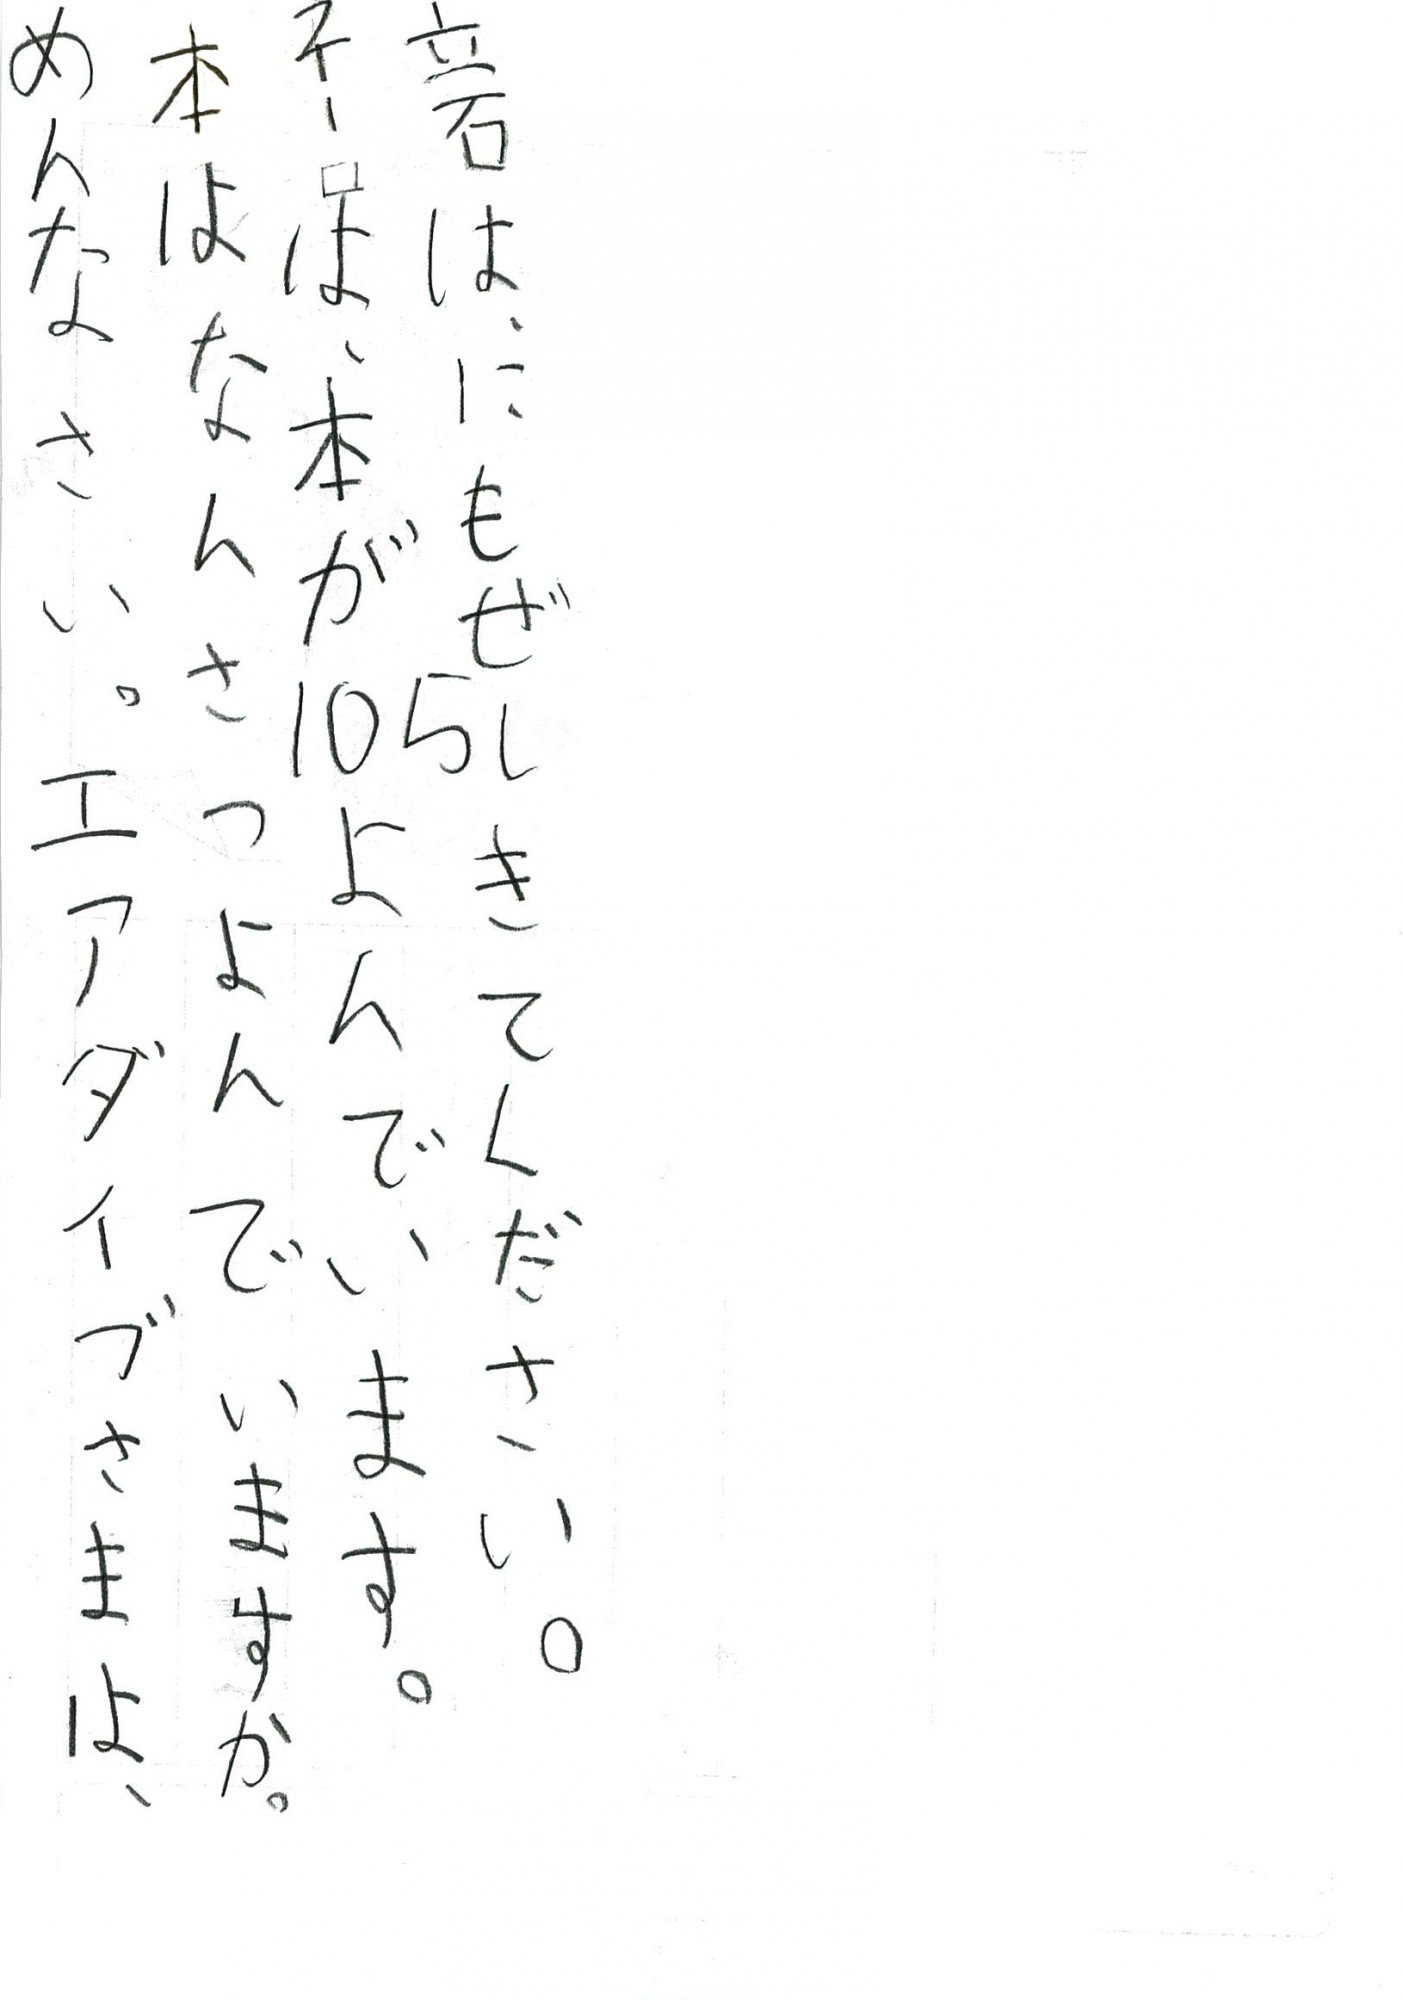 めんなさい。エアダイブさまは、
本はなんさつよんでいますか。
は、本が105よんでいます。
は、にもぜしきてください。